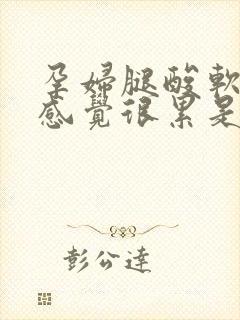 孕婦腿酸軟
感覺很累是
彭公達